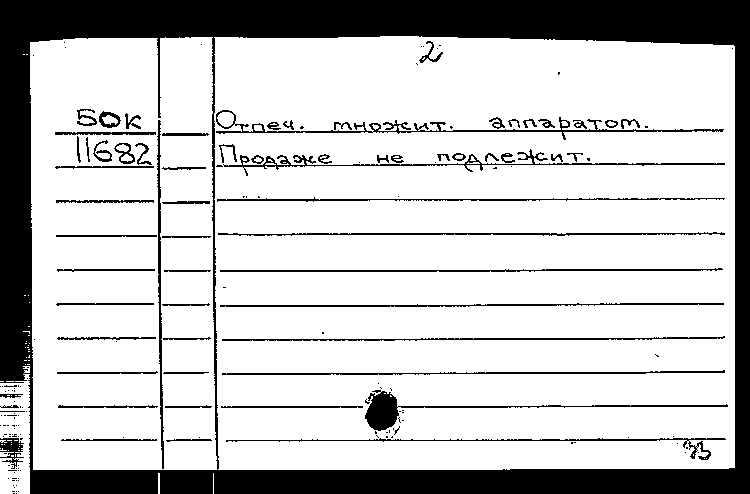 2
БОК Отпеч. множит. аппаратом.
11682 Продаже не подлежит.
33